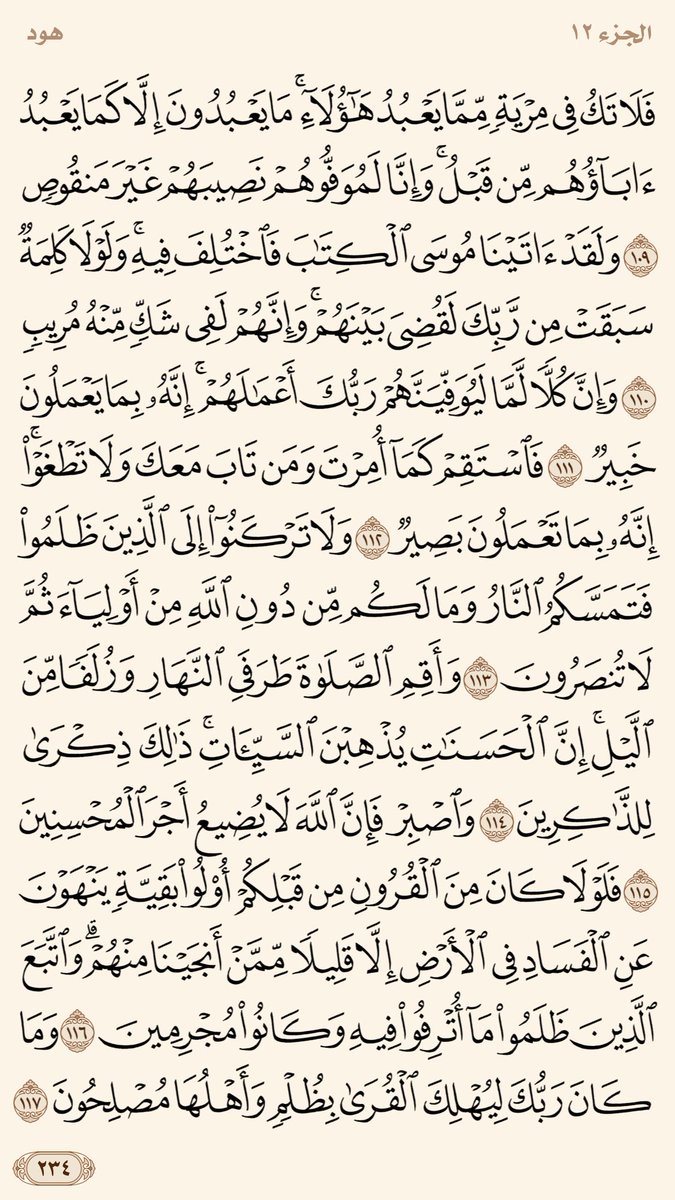 الجزء ١٢
هود
فَلَا تَكُ فِى مِرْيَةٍ مِّمَّا يَعْبُدُ هَٰٓؤُلَآءِ ۚ مَا يَعْبُدُونَ إِلَّا كَمَا يَعْبُدُ
ءَابَآؤُهُم مِّن قَبْلُ ۚ وَإِنَّا لَمُوَفُّوهُمْ نَصِيبَهُمْ غَيْرَ مَنقُوصٍ
١٠٩ وَلَقَدْ ءَاتَيْنَا مُوسَى ٱلْكِتَٰبَ فَٱخْتُلِفَ فِيهِ ۚ وَلَوْلَا كَلِمَةٌ
سَبَقَتْ مِن رَّبِّكَ لَقُضِىَ بَيْنَهُمْ ۚ وَإِنَّهُمْ لَفِى شَكٍّ مِّنْهُ مُرِيبٍ
١١٠ وَإِنَّ كُلًّا لَّمَّا لَيُوَفِّيَنَّهُمْ رَبُّكَ أَعْمَٰلَهُمْ ۚ إِنَّهُۥ بِمَا يَعْمَلُونَ
خَبِيرٌ ١١١ فَٱسْتَقِمْ كَمَآ أُمِرْتَ وَمَن تَابَ مَعَكَ وَلَا تَطْغَوْا۟ ۚ
إِنَّهُۥ بِمَا تَعْمَلُونَ بَصِيرٌ ١١٢ وَلَا تَرْكَنُوٓا۟ إِلَى ٱلَّذِينَ ظَلَمُوا۟
فَتَمَسَّكُمُ ٱلنَّارُ وَمَا لَكُم مِّن دُونِ ٱللَّهِ مِنْ أَوْلِيَآءَ ثُمَّ
لَا تُنصَرُونَ ١١٣ وَأَقِمِ ٱلصَّلَوٰةَ طَرَفَىِ ٱلنَّهَارِ وَزُلَفًا مِّنَ
ٱلَّيْلِ ۚ إِنَّ ٱلْحَسَنَٰتِ يُذْهِبْنَ ٱلسَّيِّـَٔاتِ ۚ ذَٰلِكَ ذِكْرَىٰ
لِلذَّٰكِرِينَ ١١٤ وَٱصْبِرْ فَإِنَّ ٱللَّهَ لَا يُضِيعُ أَجْرَ ٱلْمُحْسِنِينَ
١١٥ فَلَوْلَا كَانَ مِنَ ٱلْقُرُونِ مِن قَبْلِكُمْ أُو۟لُوا۟ بَقِيَّةٍ يَنْهَوْنَ
عَنِ ٱلْفَسَادِ فِى ٱلْأَرْضِ إِلَّا قَلِيلًا مِّمَّنْ أَنجَيْنَا مِنْهُمْ ۗ وَٱتَّبَعَ
ٱلَّذِينَ ظَلَمُوا۟ مَآ أُتْرِفُوا۟ فِيهِ وَكَانُوا۟ مُجْرِمِينَ ١١٦ وَمَا
كَانَ رَبُّكَ لِيُهْلِكَ ٱلْقُرَىٰ بِظُلْمٍ وَأَهْلُهَا مُصْلِحُونَ ١١٧
٢٣٤